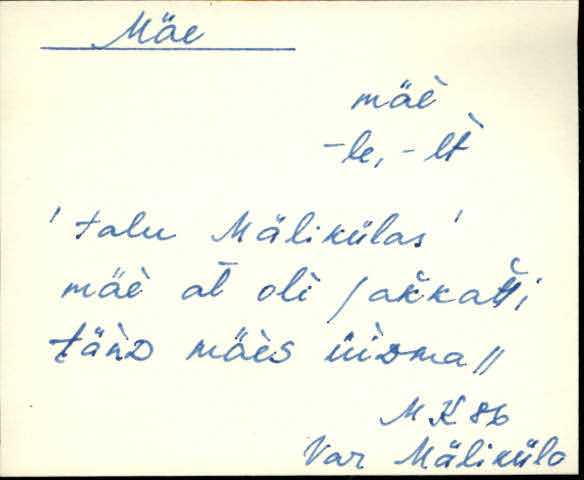 Mäe
mäè
-le, -lt̀
'talu Mälikülas'
mäè al̄ oli / ak̆kat̆ti
täǹD mäès üìDma //
MK 86
Var Mälikülo